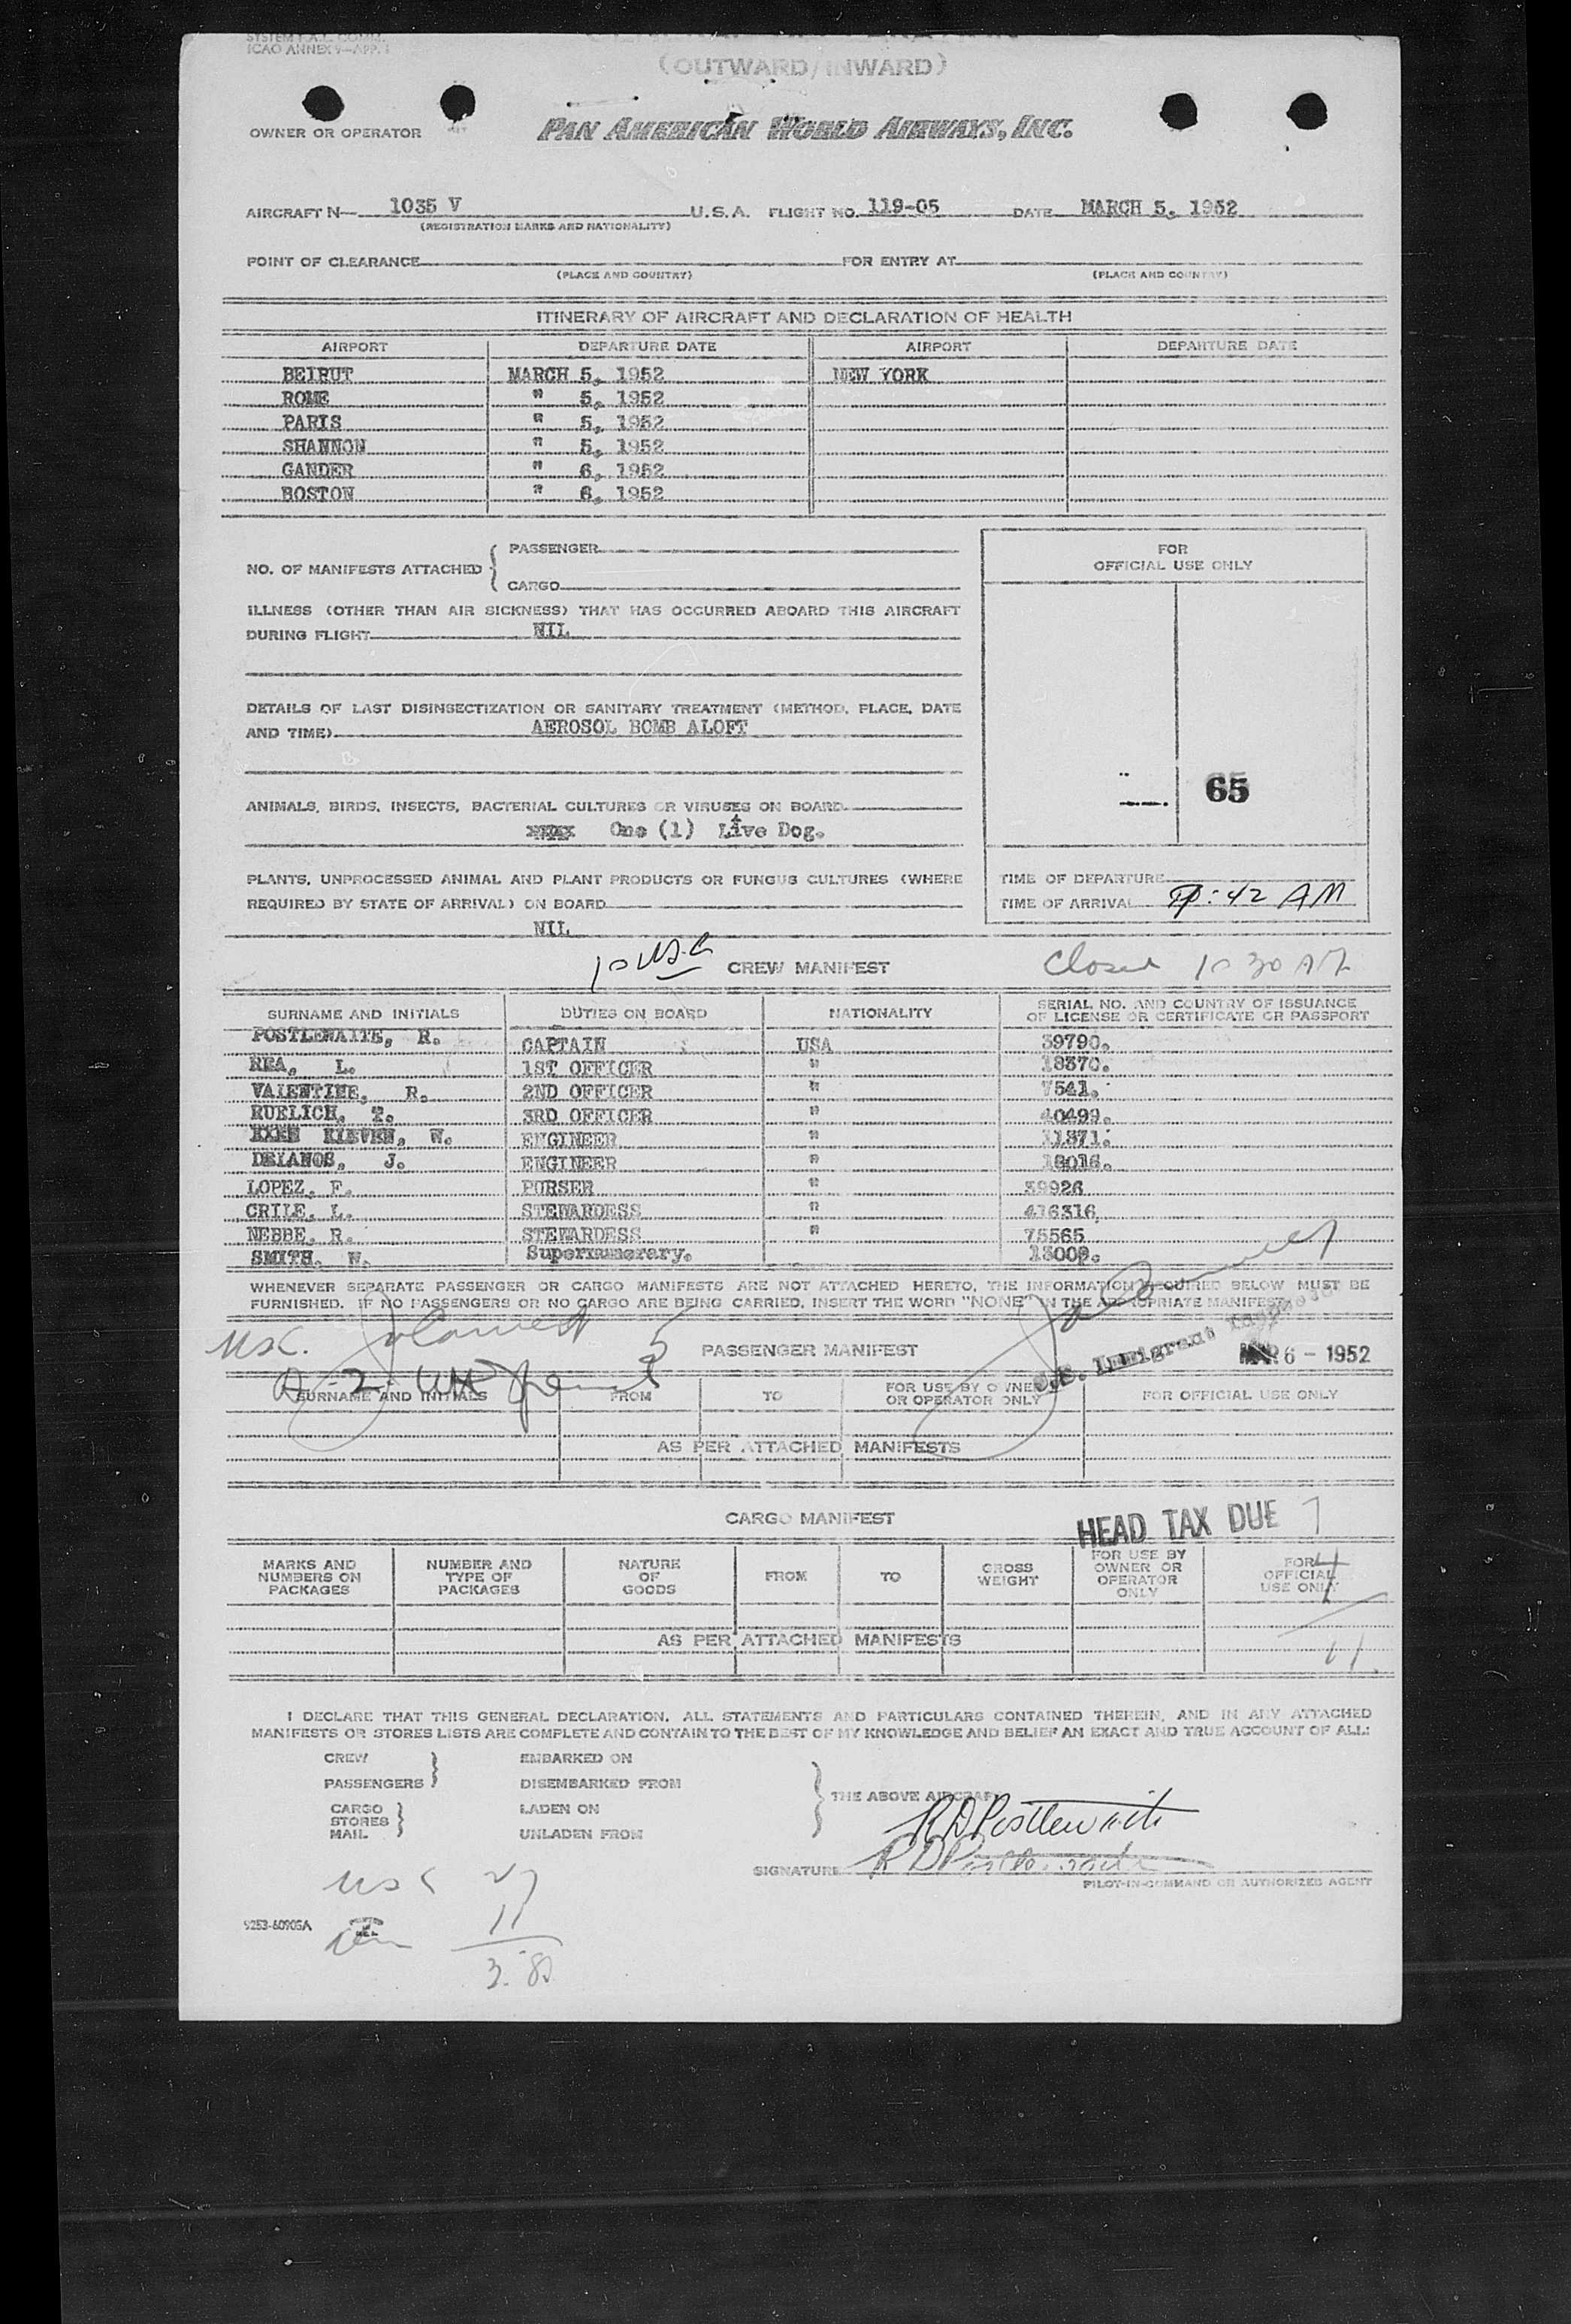 ICAO ANNEX 9—APP. 1
(OUTWARD/INWARD)
OWNER OR OPERATOR PAN AMERICAN WORLD AIRWAYS, INC.
AIRCRAFT N— 1035 V U.S.A. FLIGHT NO. 119-05 DATE MARCH 5, 1952
(REGISTRATION MARKS AND NATIONALITY)
POINT OF CLEARANCE FOR ENTRY AT
(PLACE AND COUNTRY) (PLACE AND COUNTRY)
ITINERARY OF AIRCRAFT AND DECLARATION OF HEALTH
AIRPORT DEPARTURE DATE AIRPORT DEPARTURE DATE
BEIRUT MARCH 5, 1952 NEW YORK
ROME " 5, 1952
PARIS " 5, 1952
SHANNON " 5, 1952
GANDER " 6, 1952
BOSTON " 6, 1952
NO. OF MANIFESTS ATTACHED { PASSENGER
CARGO
FOR
OFFICIAL USE ONLY
ILLNESS (OTHER THAN AIR SICKNESS) THAT HAS OCCURRED ABOARD THIS AIRCRAFT
DURING FLIGHT NIL
DETAILS OF LAST DISINSECTIZATION OR SANITARY TREATMENT (METHOD, PLACE, DATE
AND TIME) AEROSOL BOMB ALOFT
65
ANIMALS, BIRDS, INSECTS, BACTERIAL CULTURES OR VIRUSES ON BOARD
One (1) Live Dog.
PLANTS, UNPROCESSED ANIMAL AND PLANT PRODUCTS OR FUNGUS CULTURES (WHERE
REQUIRED BY STATE OF ARRIVAL) ON BOARD
NIL
TIME OF DEPARTURE
TIME OF ARRIVAL :42 AM
10 USC CREW MANIFEST Closed 10 30 AM
SURNAME AND INITIALS DUTIES ON BOARD NATIONALITY SERIAL NO. AND COUNTRY OF ISSUANCE
OF LICENSE OR CERTIFICATE OR PASSPORT
POSTLEWAITE, R. CAPTAIN USA 39790.
REA, L. 1ST OFFICER " 18370.
VALENTINE, R. 2ND OFFICER " 7541.
RUELICH, T. 3RD OFFICER " 40499.
KIEVEN, W. ENGINEER " 11371.
DEIANOS, J. ENGINEER " 18016.
LOPEZ, F. PURSER " 39926
CRILE, L. STEWARDESS " 416316
NEBBE, R. STEWARDESS " 75565
SMITH, W. Supernumerary. 13009.
WHENEVER SEPARATE PASSENGER OR CARGO MANIFESTS ARE NOT ATTACHED HERETO, THE INFORMATION REQUIRED BELOW MUST BE
FURNISHED. IF NO PASSENGERS OR NO CARGO ARE BEING CARRIED, INSERT THE WORD "NONE" IN THE APPROPRIATE MANIFEST.
USC. 5 PASSENGER MANIFEST U.S. Immigrant Inspector MAR 6 - 1952
SURNAME AND INITIALS FROM TO FOR USE BY OWNER
OR OPERATOR ONLY FOR OFFICIAL USE ONLY
AS PER ATTACHED MANIFESTS
CARGO MANIFEST HEAD TAX DUE 7
MARKS AND
NUMBERS ON
PACKAGES
NUMBER AND
TYPE OF
PACKAGES
NATURE
OF
GOODS
FROM
TO
GROSS
WEIGHT
FOR USE BY
OWNER OR
OPERATOR
ONLY
FOR
OFFICIAL
USE ONLY
4
AS PER ATTACHED MANIFESTS
11.
I DECLARE THAT THIS GENERAL DECLARATION, ALL STATEMENTS AND PARTICULARS CONTAINED THEREIN, AND IN ANY ATTACHED
MANIFESTS OR STORES LISTS ARE COMPLETE AND CONTAIN TO THE BEST OF MY KNOWLEDGE AND BELIEF AN EXACT AND TRUE ACCOUNT OF ALL:
CREW EMBARKED ON
PASSENGERS DISEMBARKED FROM
THE ABOVE AIRCRAFT
CARGO LADEN ON
STORES
MAIL UNLADEN FROM
R D Postlewaite
SIGNATURE R D Postlewaite
PILOT-IN-COMMAND OR AUTHORIZED AGENT
USC 27
11
9253-60905A
38